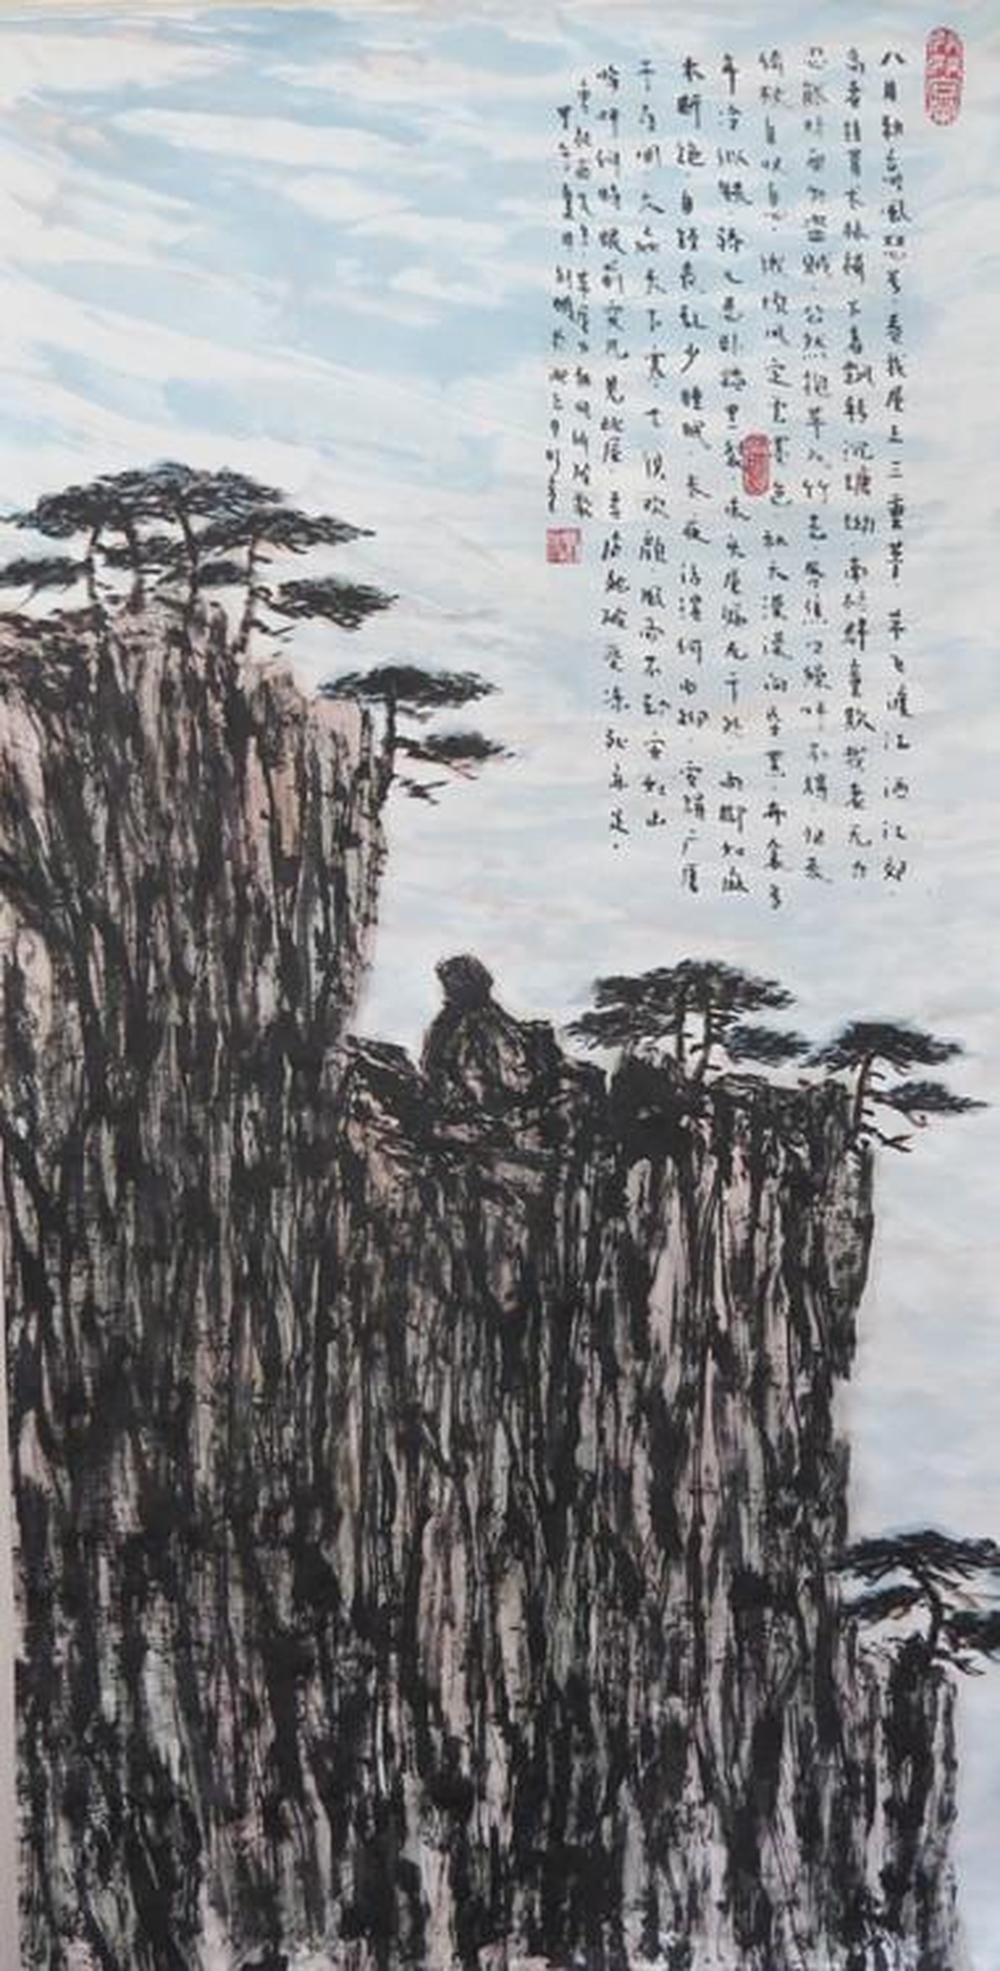 八月秋高风怒号卷我屋上三重茅茅飞渡江洒江郊
高者挂罥长林梢下者飘转沉塘坳南村群童欺我老无力
忍能对面为盗贼公然抱茅入竹去唇焦口燥呼不得归来
倚杖自叹息俄顷风定云墨色秋天漠漠向昏黑布衾多
年冷似铁娇儿恶卧踏里裂床头屋漏无干处雨脚如麻
未断绝自经丧乱少睡眠长夜沾湿何由彻安得广厦
千万间大庇天下寒士俱欢颜风雨不动安如山
呜呼何时眼前突兀见此屋吾庐独破受冻死亦足
甲午